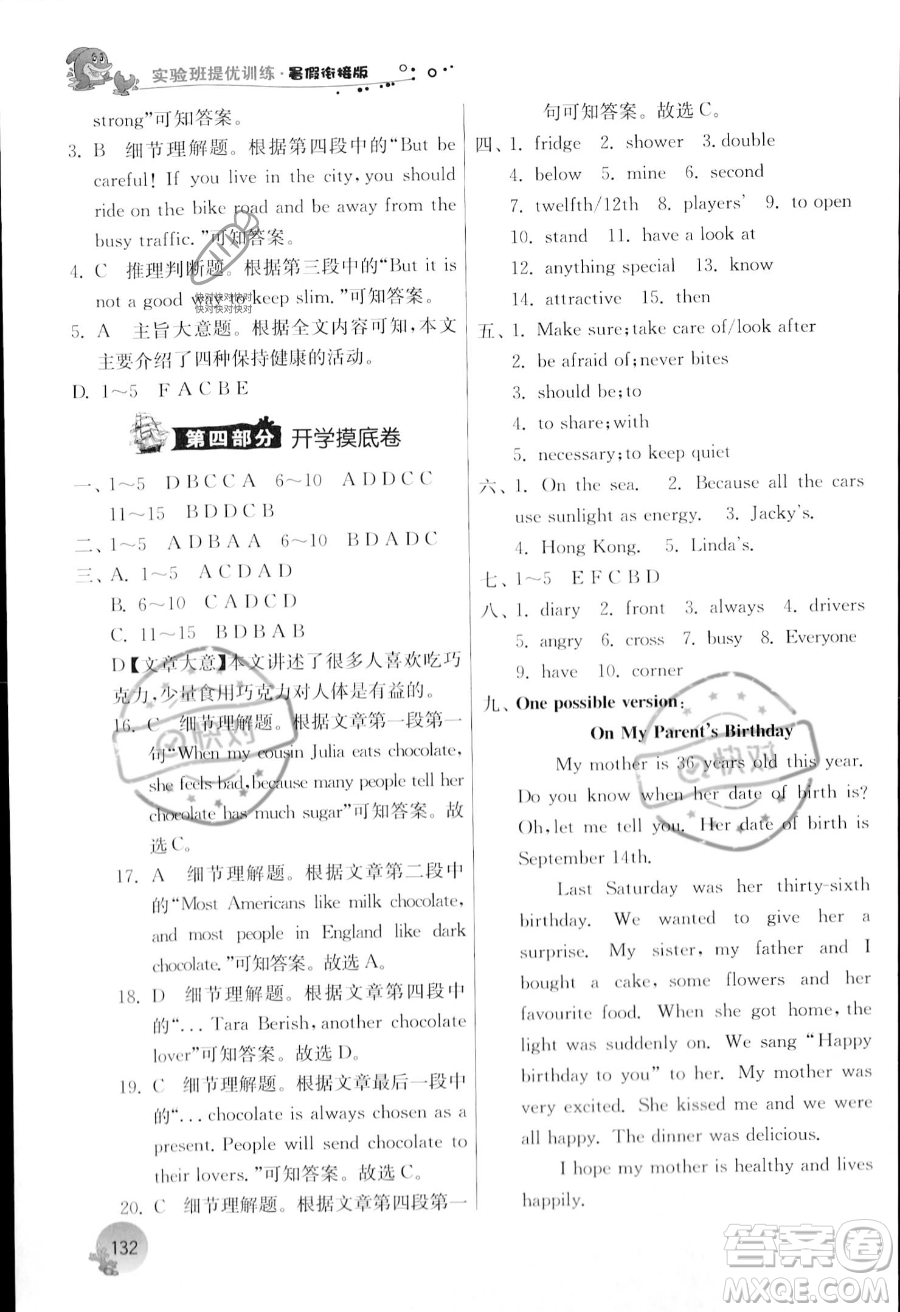 实验班提优训练·暑假衔接版
strong”可知答案。
3. B 细节理解题。根据第四段中的“But be
careful! If you live in the city, you should
ride on the bike road and be away from the
busy traffic.”可知答案。
4. C 推理判断题。根据第三段中的“But it is
not a good way to keep slim.”可知答案。
5. A 主旨大意题。根据全文内容可知,本文
主要介绍了四种保持健康的活动。
D. 1～5 F A C B E
第四部分 开学摸底卷
一、1～5 D B C C A 6～10 A D D C C
11～15 B D B C D
二、1～5 A D B A A 6～10 B D A D C
三、A. 1～5 A C D A D
B. 6～10 C A D C D
C. 11～15 B D B A B
D【文章大意】本文讲述了很多人喜欢吃巧
克力,少量食用巧克力对人体是有益的。
16. C 细节理解题。根据文章第一段第一
句“When my cousin Julia eats chocolate,
she feels bad, because many people tell her
chocolate has much sugar”可知答案。故
选C。
17. A 细节理解题。根据文章第二段中
的“Most Americans like milk chocolate,
and most people in England like dark
chocolate.”可知答案。故选A。
18. D 细节理解题。根据文章第四段中
的“... Tara Berish, another chocolate
lover”可知答案。故选D。
19. C 细节理解题。根据文章最后一段中
的“... chocolate is always chosen as a
present. People will send chocolate to
their lovers.”可知答案。故选C。
20. C 细节理解题。根据文章第四段第一
132
句可知答案。故选C。
四、1. fridge 2. shower 3. double
4. below 5. mine 6. second
7. twelfth/12th 8. players’ 9. to open
10. stand 11. have a look at
12. anything special 13. know
14. attractive 15. then
五、1. Make sure;take care of/look after
2. be afraid of;never bites
3. should be;to
4. to share;with us
5. necessary;to keep quiet
六、1. On the sea. 2. Because all the cars
use sunlight as energy. 3. Jacky’s.
4. Hong Kong. 5. Linda’s.
七、1～5 E F C B D
八、1. diary 2. front 3. always 4. drivers
5. angry 6. cross 7. busy 8. Everyone
9. have 10. corner
九、One possible version:
On My Parent’s Birthday
My mother is 36 years old this year.
Do you know when her date of birth is?
Oh, let me tell you. Her date of birth is
September 14th.
Last Saturday was her thirty-sixth
birthday. We wanted to give her a
surprise. My sister, my father and I
bought a cake, some flowers and her
favourite food. When she got home, the
light was suddenly on. We sang “Happy
birthday to you” to her. My mother was
very excited. She kissed me and we were
all happy. The dinner was delicious.
I hope my mother is healthy and lives
happily.
快对快对快对
快对快对快对
快对
快对
答案卷
MXQE.COM